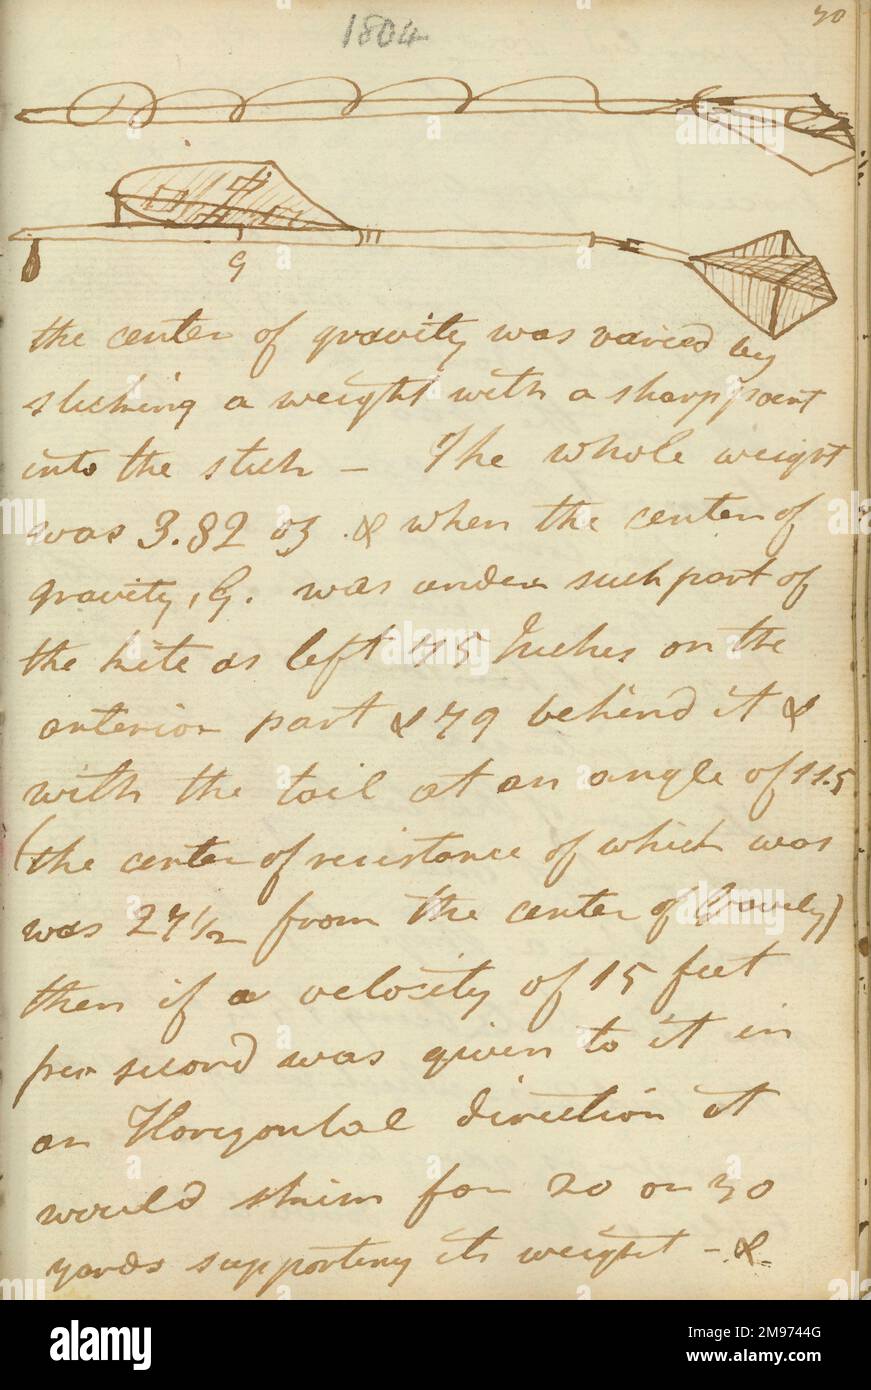 30
1804
G
the center of gravity was varied by
sticking a weight with a sharp point
into the stick – The whole weight
was 3.82 oz & when the center of
gravity, G. was under such part of
the kite as left 75 Inches on the
anterior part & 79 behind it &
with the tail at an angle of 11.5
(the center of resistance of which was
was 27½ from the center of Gravity)
then if a velosity of 15 feet
per second was given to it in
an Horizontal direction it
would skim for 20 or 30
yards supporting its weight – &
alamy
alamy
Image ID: 2M9744G
www.alamy.com